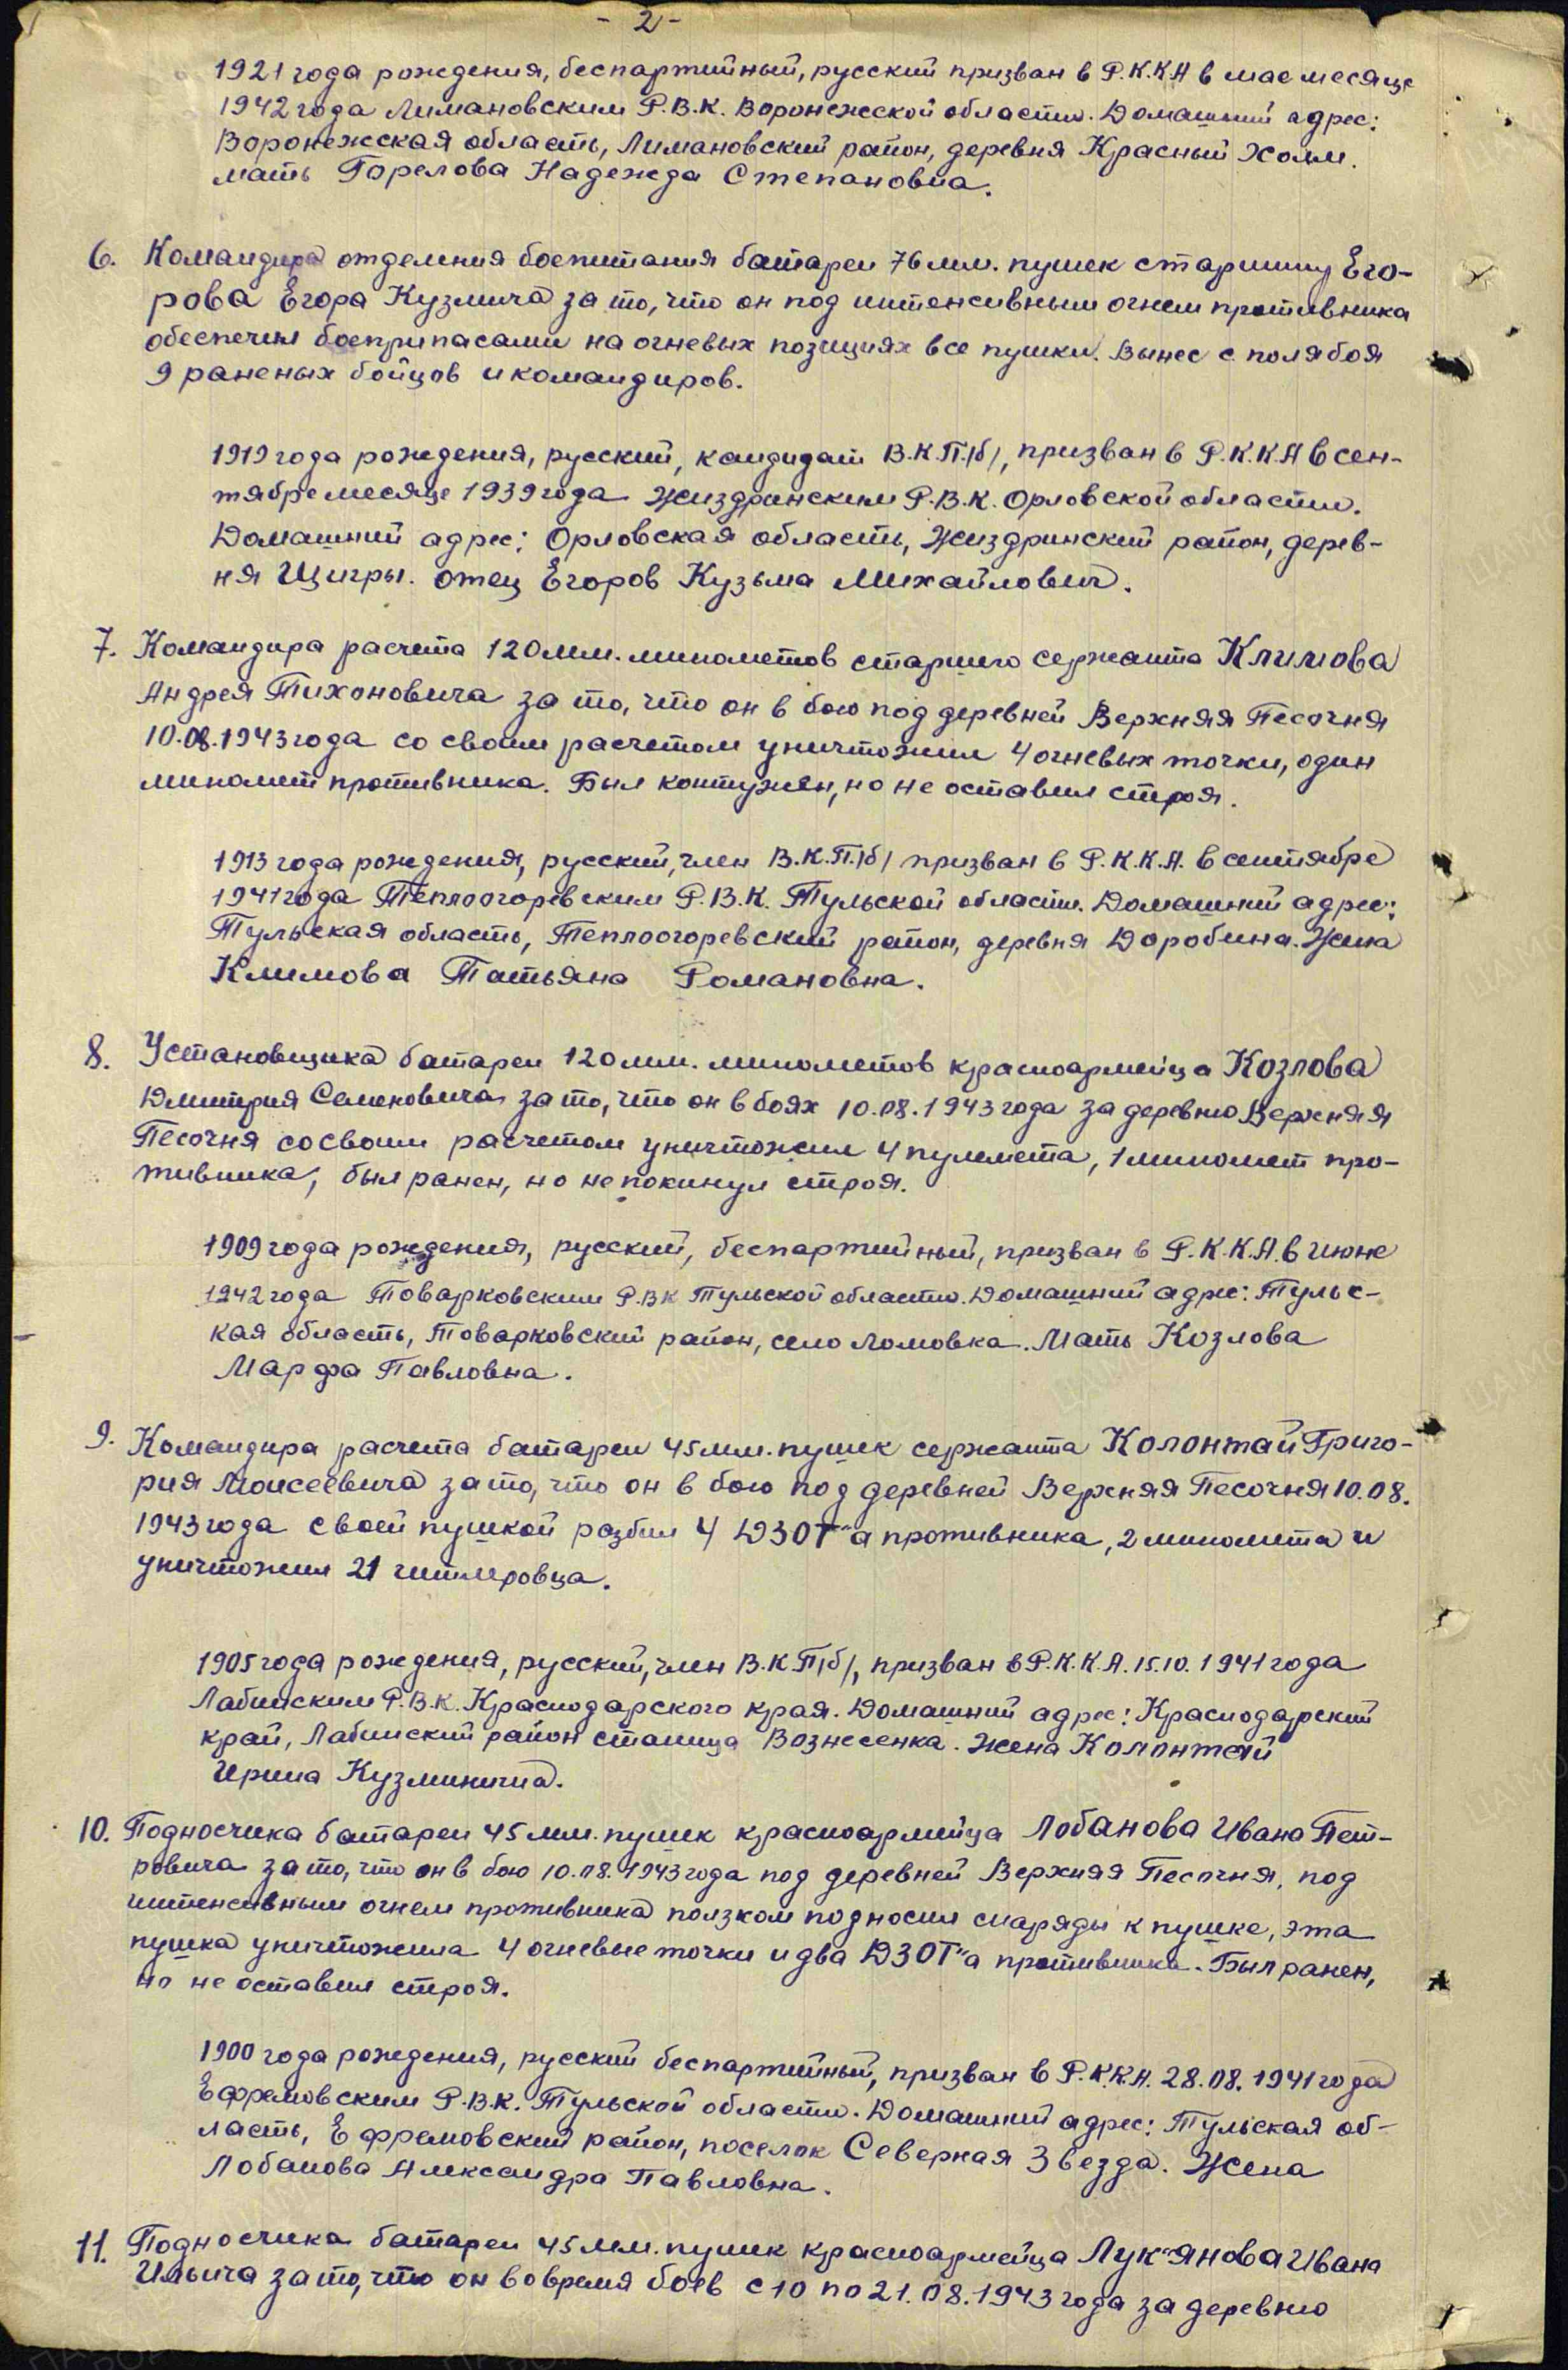 - 2 -
1921 года рождения, беспартийный, русский призван в Р.К.К.А в мае месяце
1942 года Лимановским Р.В.К. Воронежской области. Домашний адрес:
Воронежская область, Лимановский район, деревня Красный Холм.
мать Горелова Надежда Степановна.
6. Командира отделения боепитания батареи 76 мм. пушек старшину Его-
рова Егора Кузмича за то, что он под интенсивным огнем противника
обеспечил боеприпасами на огневых позициях все пушки. Вынес с поля боя
9 раненых бойцов и командиров.
1919 года рождения, русский, кандидат В.К.П./б/, призван в Р.К.К.А в сен-
тябре месяце 1939 года Жиздринским Р.В.К. Орловской области.
Домашний адрес: Орловская область, Жиздринский район, дерев-
ня Щигры. отец Егоров Кузьма Михайлович.
7. Командира расчета 120 мм. минометов старшего сержанта Климова
Андрея Тихоновича за то, что он в бою под деревней Верхняя Песочня
10.08.1943 года со своим расчетом уничтожил 4 огневых точки, один
миномет противника. Был контужен, но не оставил строя.
1913 года рождения, русский, член В.К.П./б/ призван в Р.К.К.А. в сентябре
1941 года Теплоогоревским Р.В.К. Тульской области. Домашний адрес:
Тульская область, Теплоогоревский район, деревня Доробина. Жена
Климова Татьяна Романовна.
8. Установщика батареи 120 мм. минометов красноармейца Козлова
Дмитрия Семеновича за то, что он в боях 10.08.1943 года за деревню Верхняя
Песочня со своим расчетом уничтожил 4 пулемета, 1 миномет про-
тивника, был ранен, но не покинул строя.
1909 года рождения, русский, беспартийный, призван в Р.К.К.А. в июне
1942 года Товарковским Р.В.К Тульской области. Домашний адрес: Тульс-
кая область, Товарковский район, село Ломовка. Мать Козлова
Марфа Павловна.
9. Командира расчета батареи 45 мм. пушек сержанта Колонтай Григо-
рия Моисеевича за то, что он в бою под деревней Верхняя Песочня 10.08.
1943 года своей пушкой разбил 4 ДЗОТ"а противника, 2 миномета и
уничтожил 21 гитлеровца.
1905 года рождения, русский, член В.К.П/б/, призван в Р.К.К.А. 15.10.1941 года
Лабинским Р.В.К. Краснодарского края. Домашний адрес: Краснодарский
край, Лабинский район станица Вознесенка. Жена Колонтай
Ирина Кузминична.
10. Подносчика батареи 45 мм. пушек красноармейца Лобанова Ивана Пет-
ровича за то, что он в бою 10.08.1943 года под деревней Верхняя Песочня, под
интенсивным огнем противника ползком подносил снаряды к пушке, эта
пушка уничтожила 4 огневые точки и два ДЗОТ"а противника. Был ранен,
но не оставил строя.
1900 года рождения, русский беспартийный, призван в Р.К.К.А. 28.08.1941 года
Ефремовским Р.В.К. Тульской области. Домашний адрес: Тульская об-
ласть, Ефремовский район, поселок Северная Звезда. Жена
Лобанова Александра Павловна.
11. Подносчика батареи 45 мм. пушек красноармейца Лук"янова Ивана
Ильича за то, что он во время боев с 10 по 21.08.1943 года за деревню